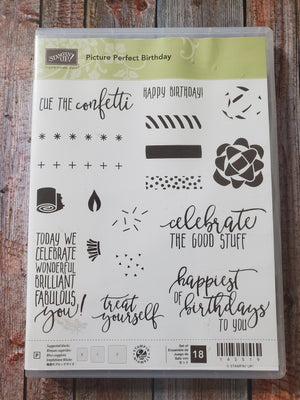 STAMPIN' UP!
Picture Perfect Birthday
CUE THE confetti
HAPPY BIRTHDAY!
celebrate
THE GOOD STUFF
TODAY WE
CELEBRATE
WONDERFUL
BRILLIANT
FABULOUS,
you!
treat
yourself
happiest
of birthdays
TO YOU
Set of
18
© STAMPIN' UP!